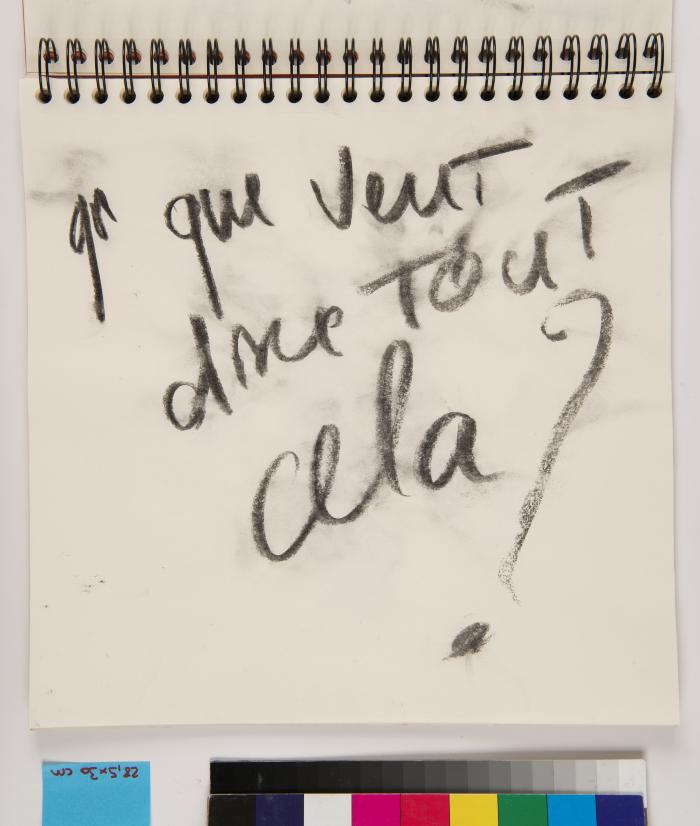 que veut
dire TOUT
cela ?
28,5x30 cm